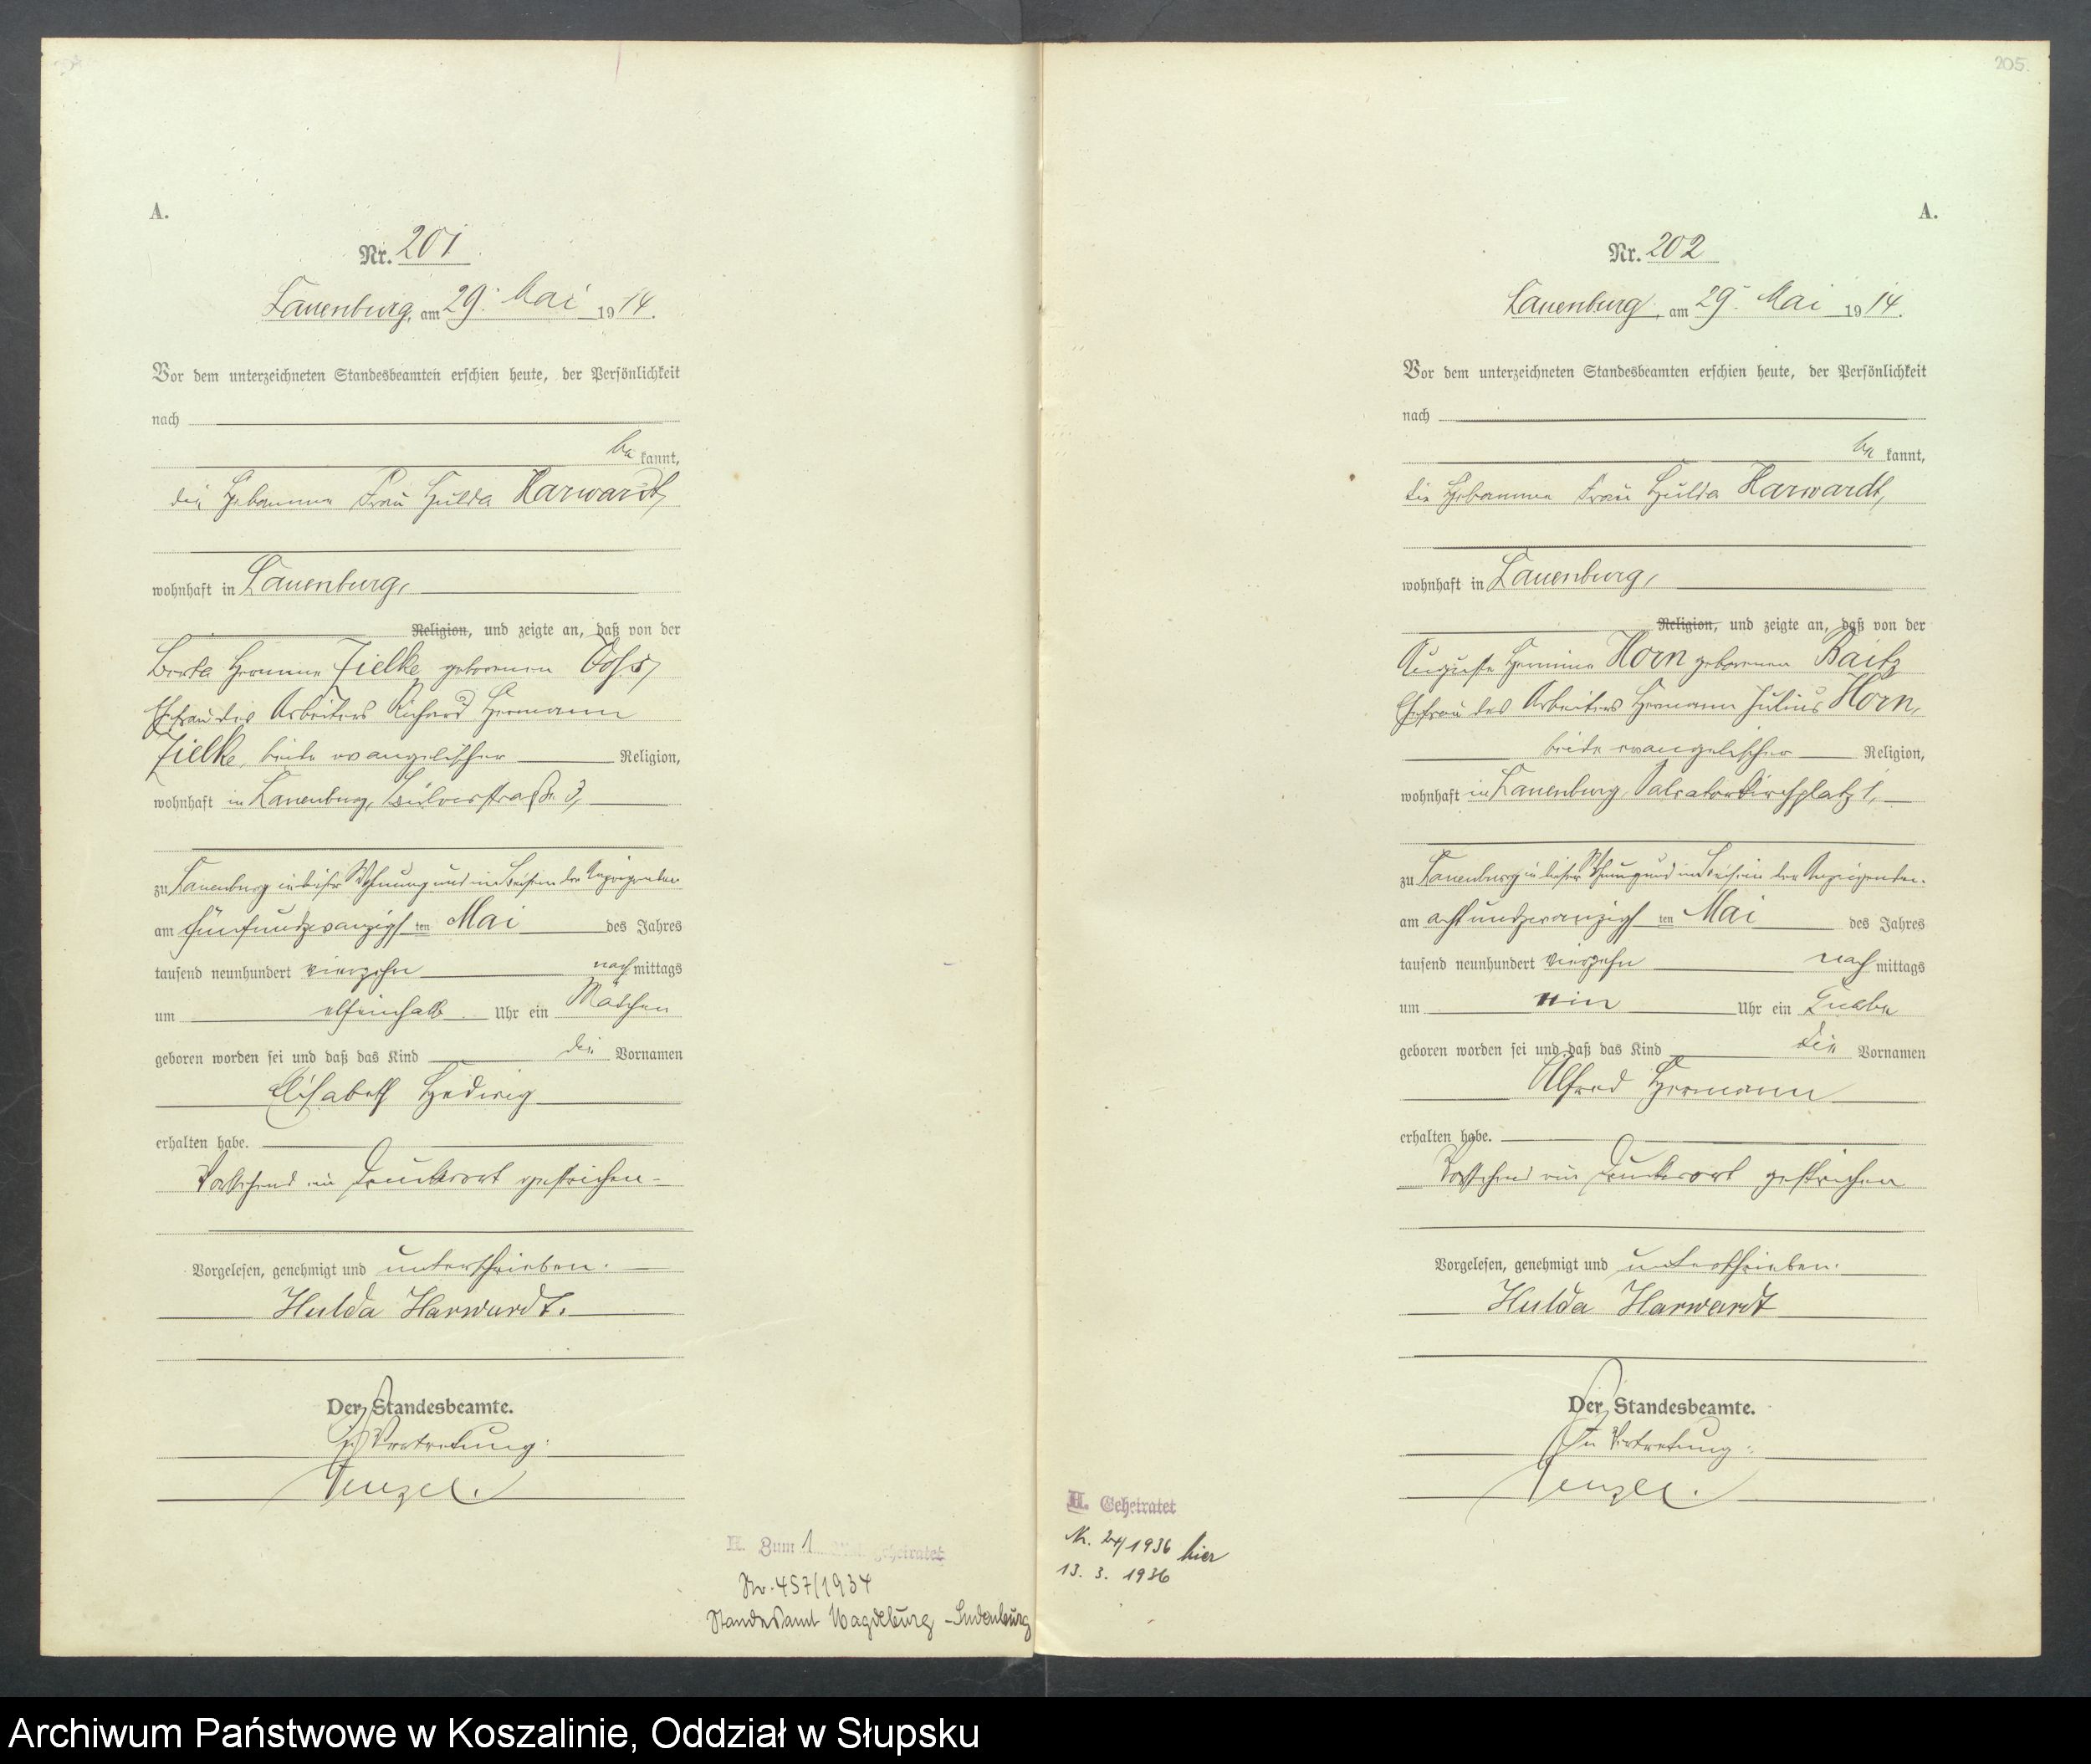 A.
Nr. 201
Lauenburg, am 29. Mai 1914.
Vor dem unterzeichneten Standesbeamten erschien heute, der Persönlichkeit
nach
be kannt,
die Hebamme Frau Hulda Harwardt,
wohnhaft in Lauenburg,
Religion, und zeigte an, daß von der
Hermine Zielke geborenen
Ehefrau des Arbeiters Richard Hermann
Zielke, beide evangelischer Religion,
wohnhaft in Lauenburg, 3,
zu Lauenburg in dieser Wohnung und im Beisein der Anzeigenden
am fünfundzwanzigsten Mai des Jahres
tausend neunhundert vierzehn nachmittags
um elfeinhalb Uhr ein Mädchen
geboren worden sei und daß das Kind die Vornamen
Elisabeth Hedwig
erhalten habe.
Vorstehend ein Druckwort gestrichen.
Vorgelesen, genehmigt und unterschrieben.
Hulda Harwardt.
Der Standesbeamte.
In Vertretung:
H. Zum 1. Mal geheiratet
Nr. 457/1934
Standesamt Magdeburg-Sudenburg
205.
A.
Nr. 202
Lauenburg, am 29. Mai 1914.
Vor dem unterzeichneten Standesbeamten erschien heute, der Persönlichkeit
nach
be kannt,
die Hebamme Frau Hulda Harwardt,
wohnhaft in Lauenburg,
Religion, und zeigte an, daß von der
Auguste Hermine Horn geborenen Raitz
Ehefrau des Arbeiters Hermann Julius Horn,
beide evangelischer Religion,
wohnhaft in Lauenburg, Salvatorkirchplatz 1,
zu Lauenburg in dieser Wohnung und im Beisein der Anzeigenden.
am achtundzwanzigsten Mai des Jahres
tausend neunhundert vierzehn nachmittags
um ein Uhr ein Knabe
geboren worden sei und daß das Kind die Vornamen
Alfred Hermann
erhalten habe.
Vorstehend ein Druckwort gestrichen
Vorgelesen, genehmigt und unterschrieben.
Hulda Harwardt
Der Standesbeamte.
In Vertretung:
H. Geheiratet
Nr. 24/1936 hier
13. 3. 1936
Archiwum Państwowe w Koszalinie, Oddział w Słupsku